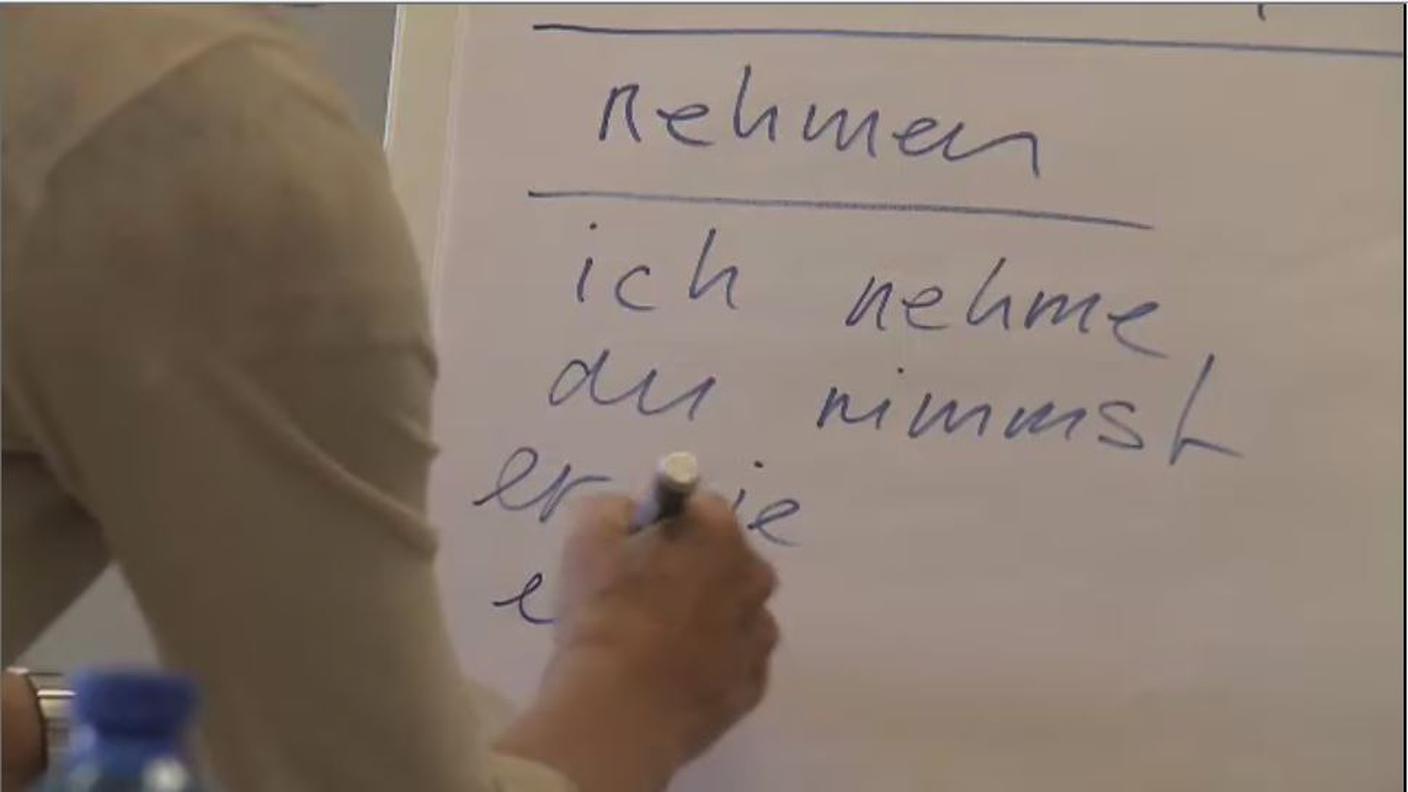 nehmen
ich nehme
du nimmst
er